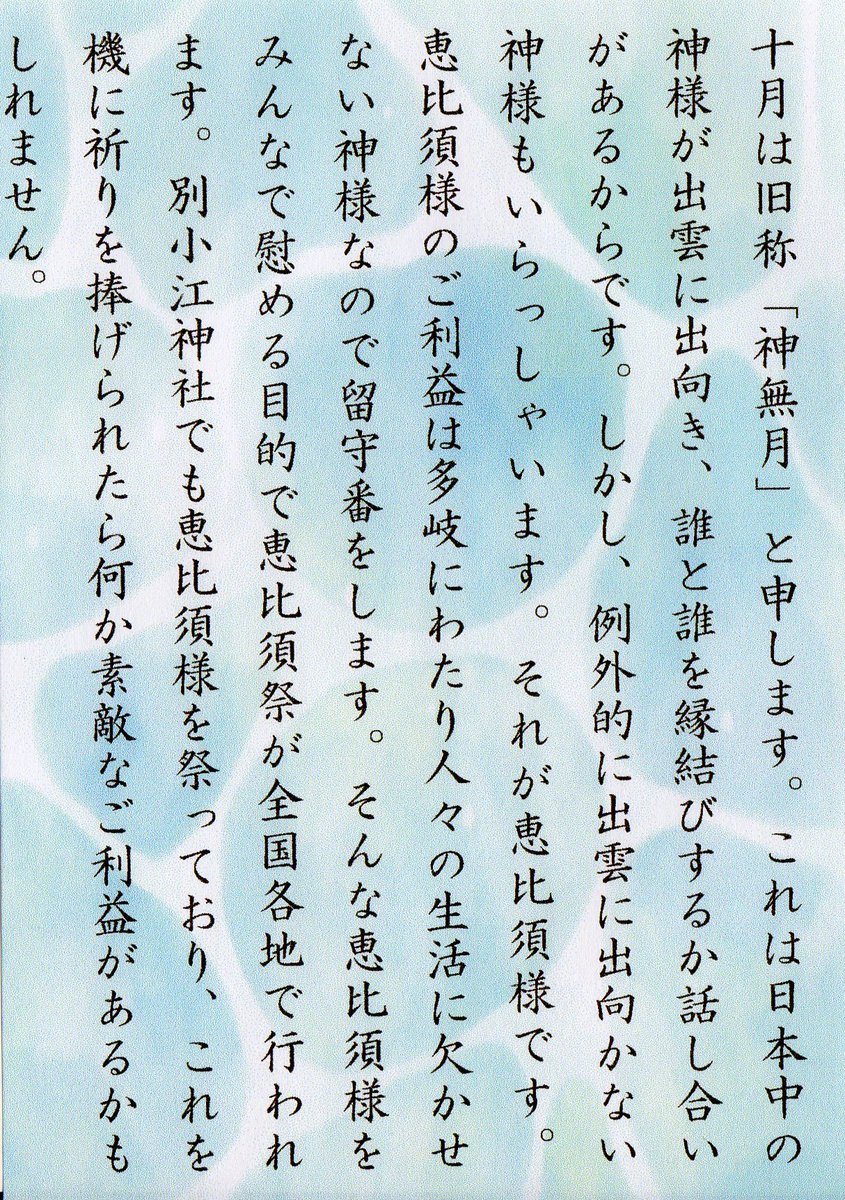 十月は旧称「神無月」と申します。これは日本中の
神様が出雲に出向き、誰と誰を縁結びするか話し合い
があるからです。しかし、例外的に出雲に出向かない
神様もいらっしゃいます。それが恵比須様です。
恵比須様のご利益は多岐にわたり人々の生活に欠かせ
ない神様なので留守番をします。そんな恵比須様を
みんなで慰める目的で恵比須祭が全国各地で行われ
ます。別小江神社でも恵比須様を祭っており、これを
機に祈りを捧げられたら何か素敵なご利益があるかも
しれません。